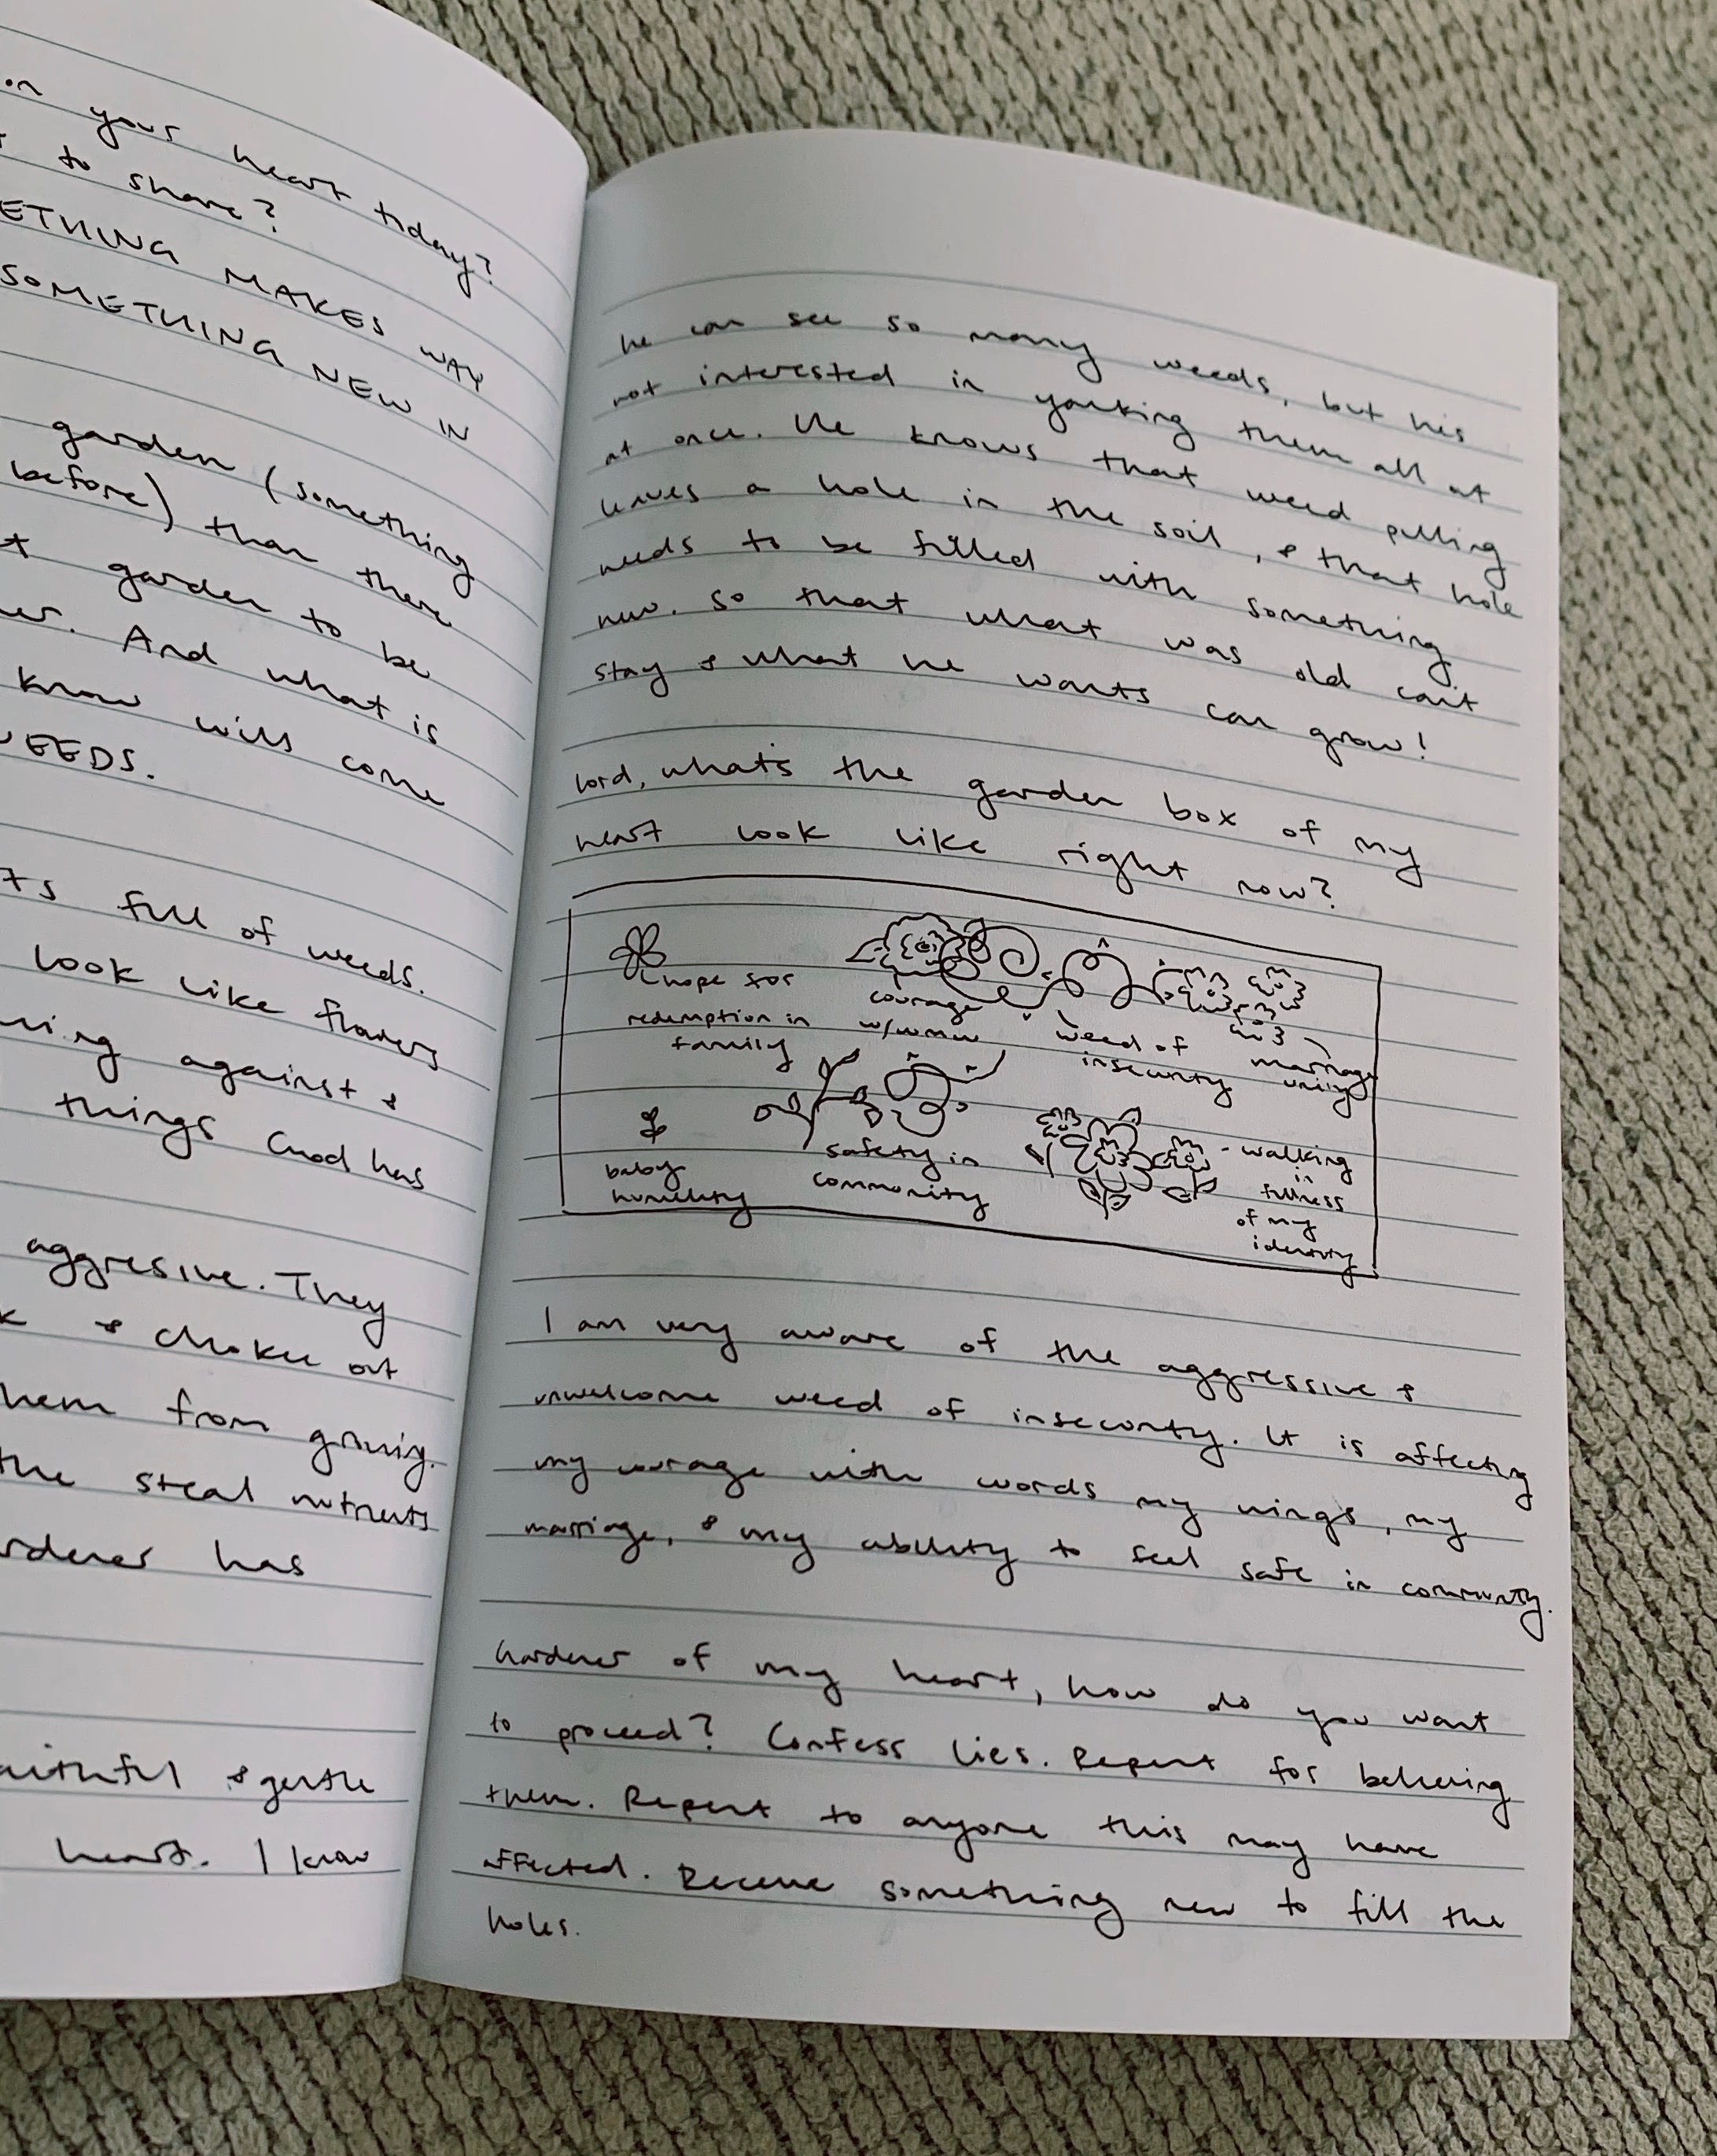 on your heart tiday?
to share?
ETHING MAKES WAY
SOMETHING NEW IN
garden (something
before) than there
garden to be
And what is
know will come
WEEDS.
full of weeds.
look like flowers
against &
things God has
aggresive. They
& choke out
hem from growing.
the steal nutrients
rdener has
aithful & gentle
heart. I know
he can see so many weeds, but his
not interested in yanking them all at
at once. He knows that weed pulling
leaves a hole in the soil, & that hole
needs to be filled with something
new. So that what was old can't
stay & what he wants can grow!
lord, what's the garden box of my
heart look like right now?
hope for
redemption in
family
courage
w/
weed of
insecurity
marriage
unity
baby
humility
safety in
community
- walking
in
fullness
of my
identity
I am very aware of the aggressive &
unwelcome weed of insecurity. It is affecting
my courage with words my wings, my
marriage, & my ability to feel safe in community.
Gardener of my heart, how do you want
to proceed? Confess lies. Repent for believing
them. Repent to anyone this may have
affected. Receive something new to fill the
holes.